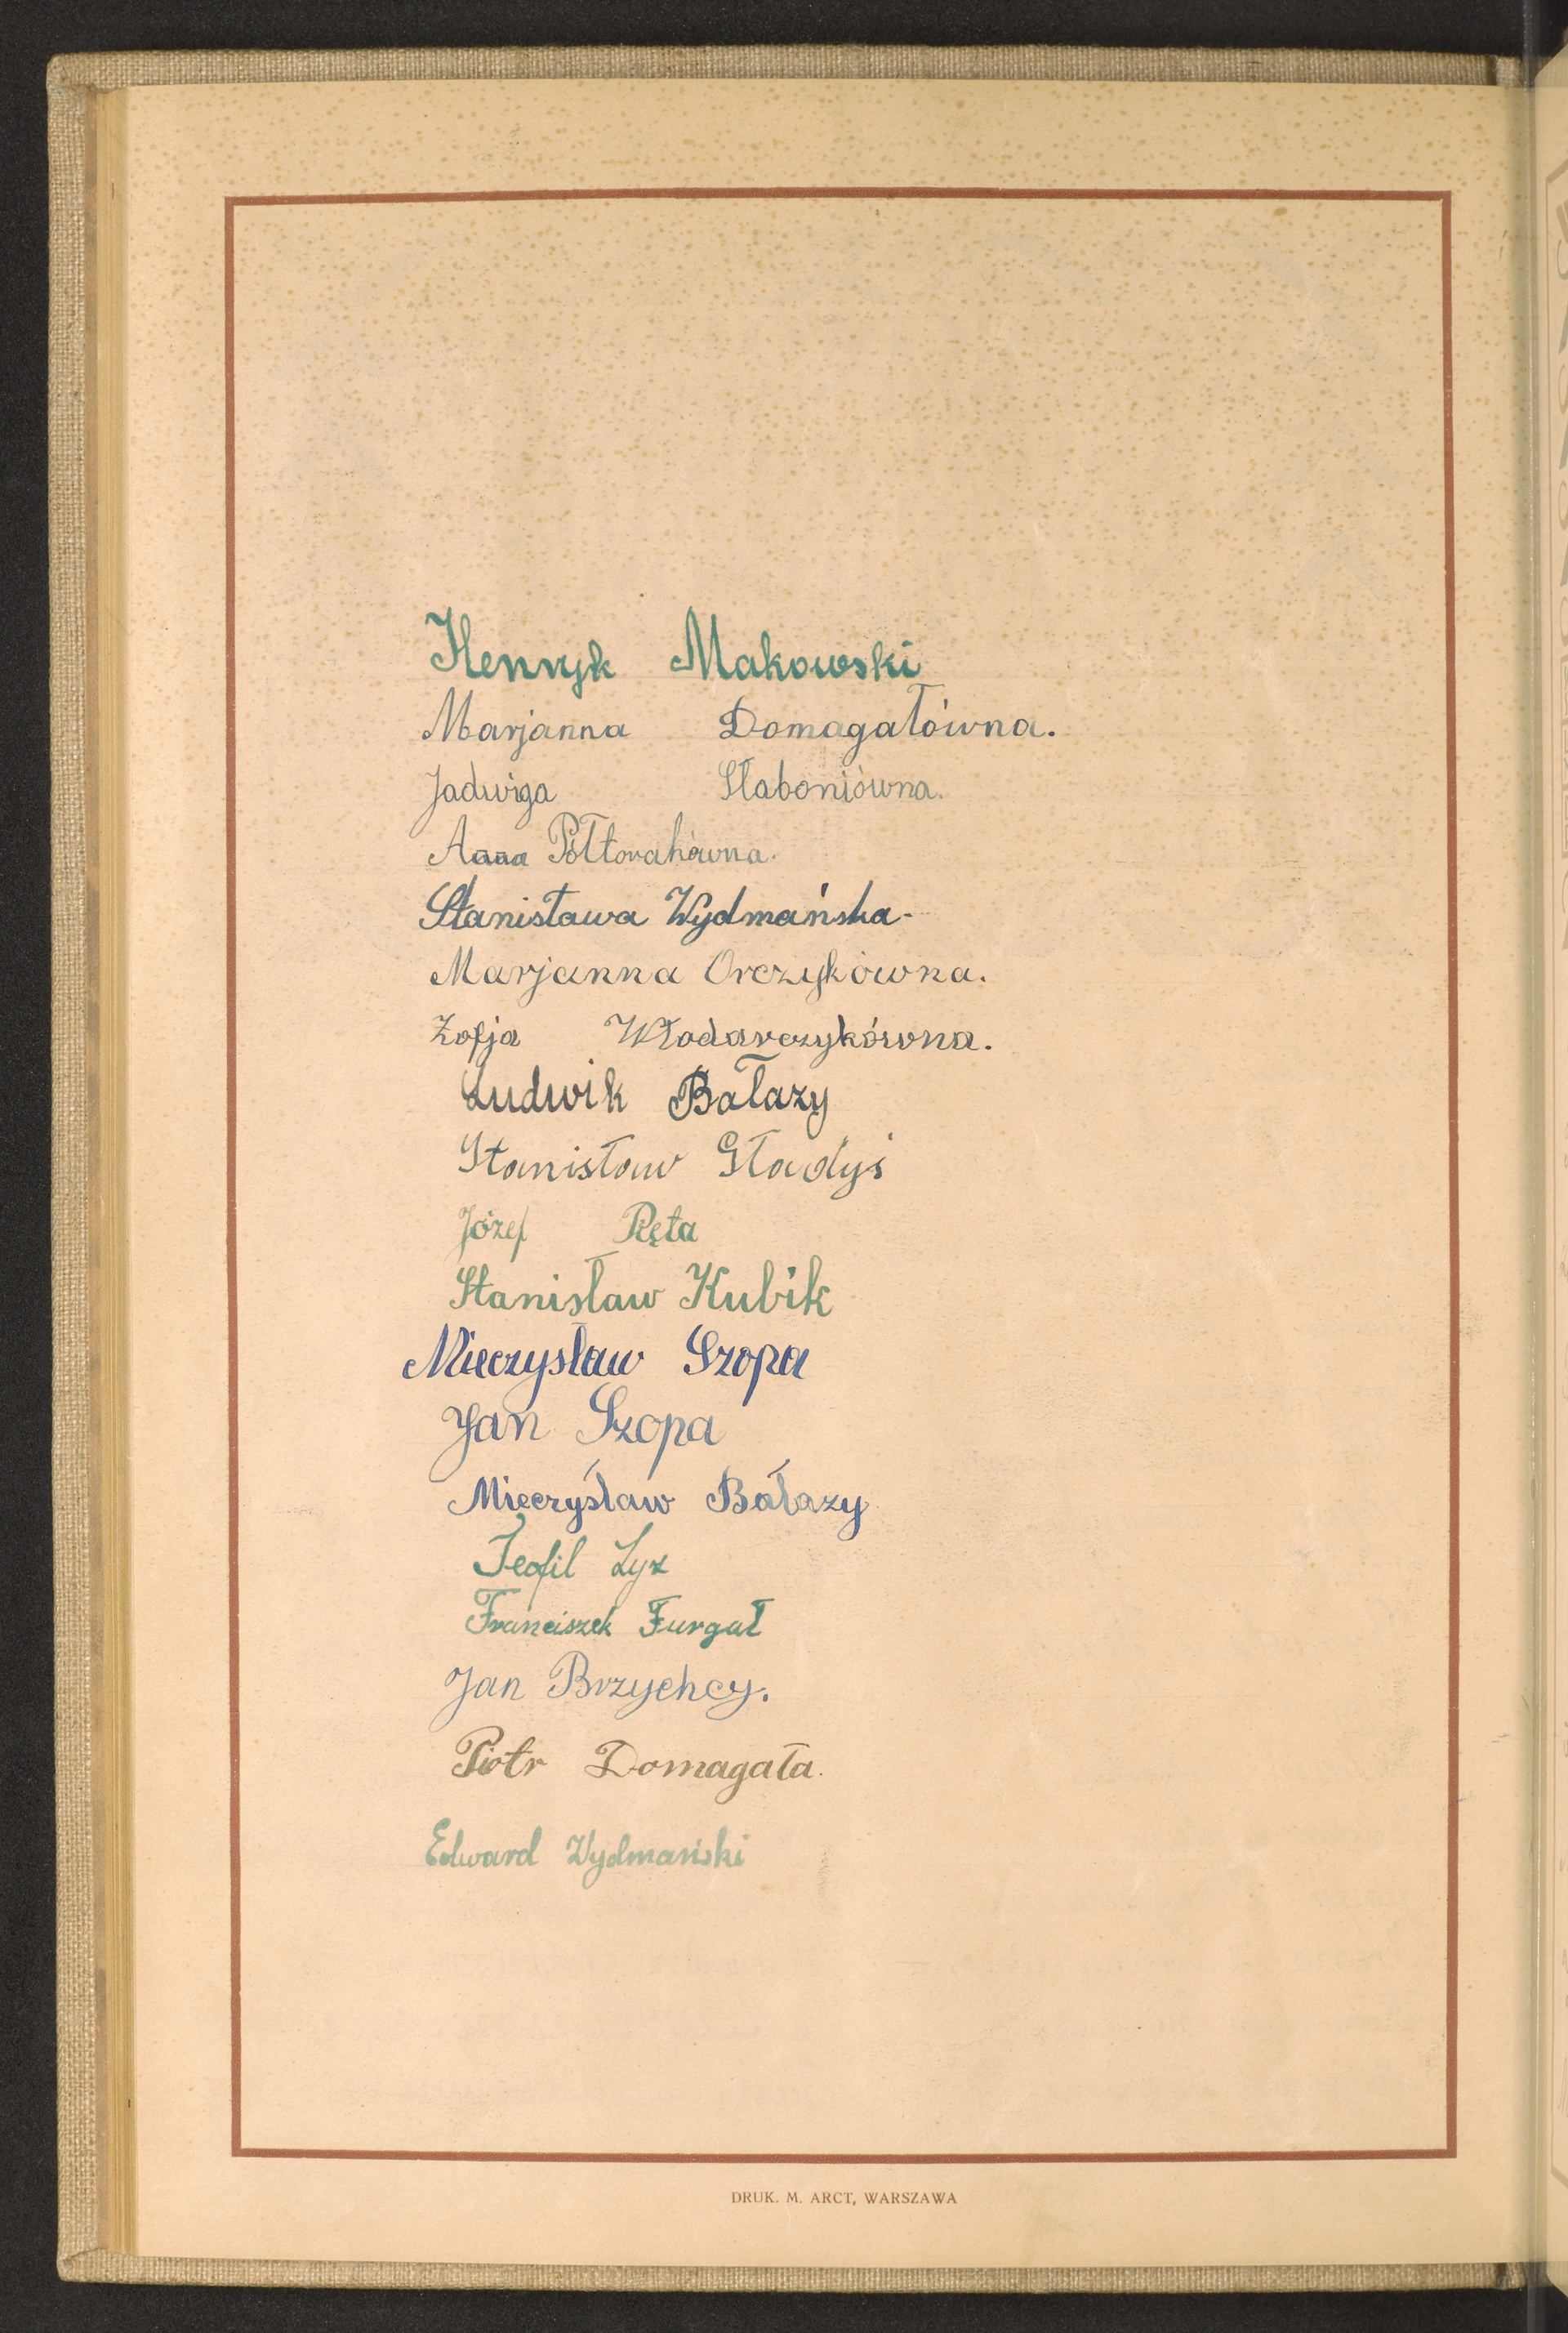 Henryk Makowski
Marjanna Domagałówna.
Jadwiga Słaboniówna.
Anna Półtorakówna.
Stanisława Wydmańska-
Marjanna Orczykówna.
Zofja Włodarczykówna.
Ludwik Bałazy
Stanisław Gładyś
Józef Ręta
Stanisław Kubik
Mieczysław Szopa
Jan Szopa
Mieczysław Bałazy
Teofil Lyx
Franciszek Furgał
Jan Brzychcy.
Piotr Domagała.
Edward Wydmański
DRUK. M. ARCT, WARSZAWA